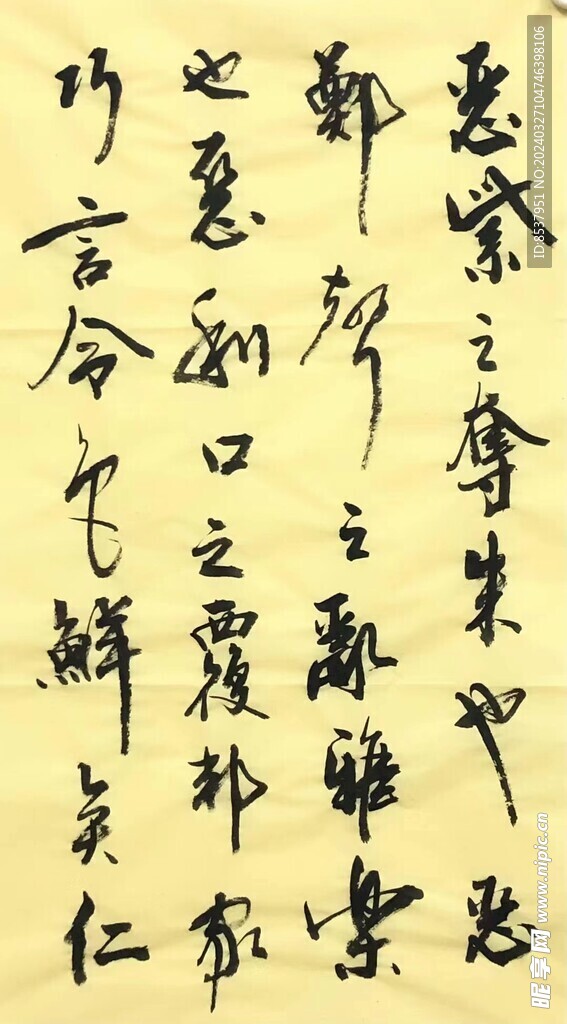 惡紫之奪朱也惡
鄭聲之亂雅樂
也惡利口之覆邦家
巧言令色鮮矣仁
ID:8537951 NO:20240327104746398106
昵享网 www.nipic.cn